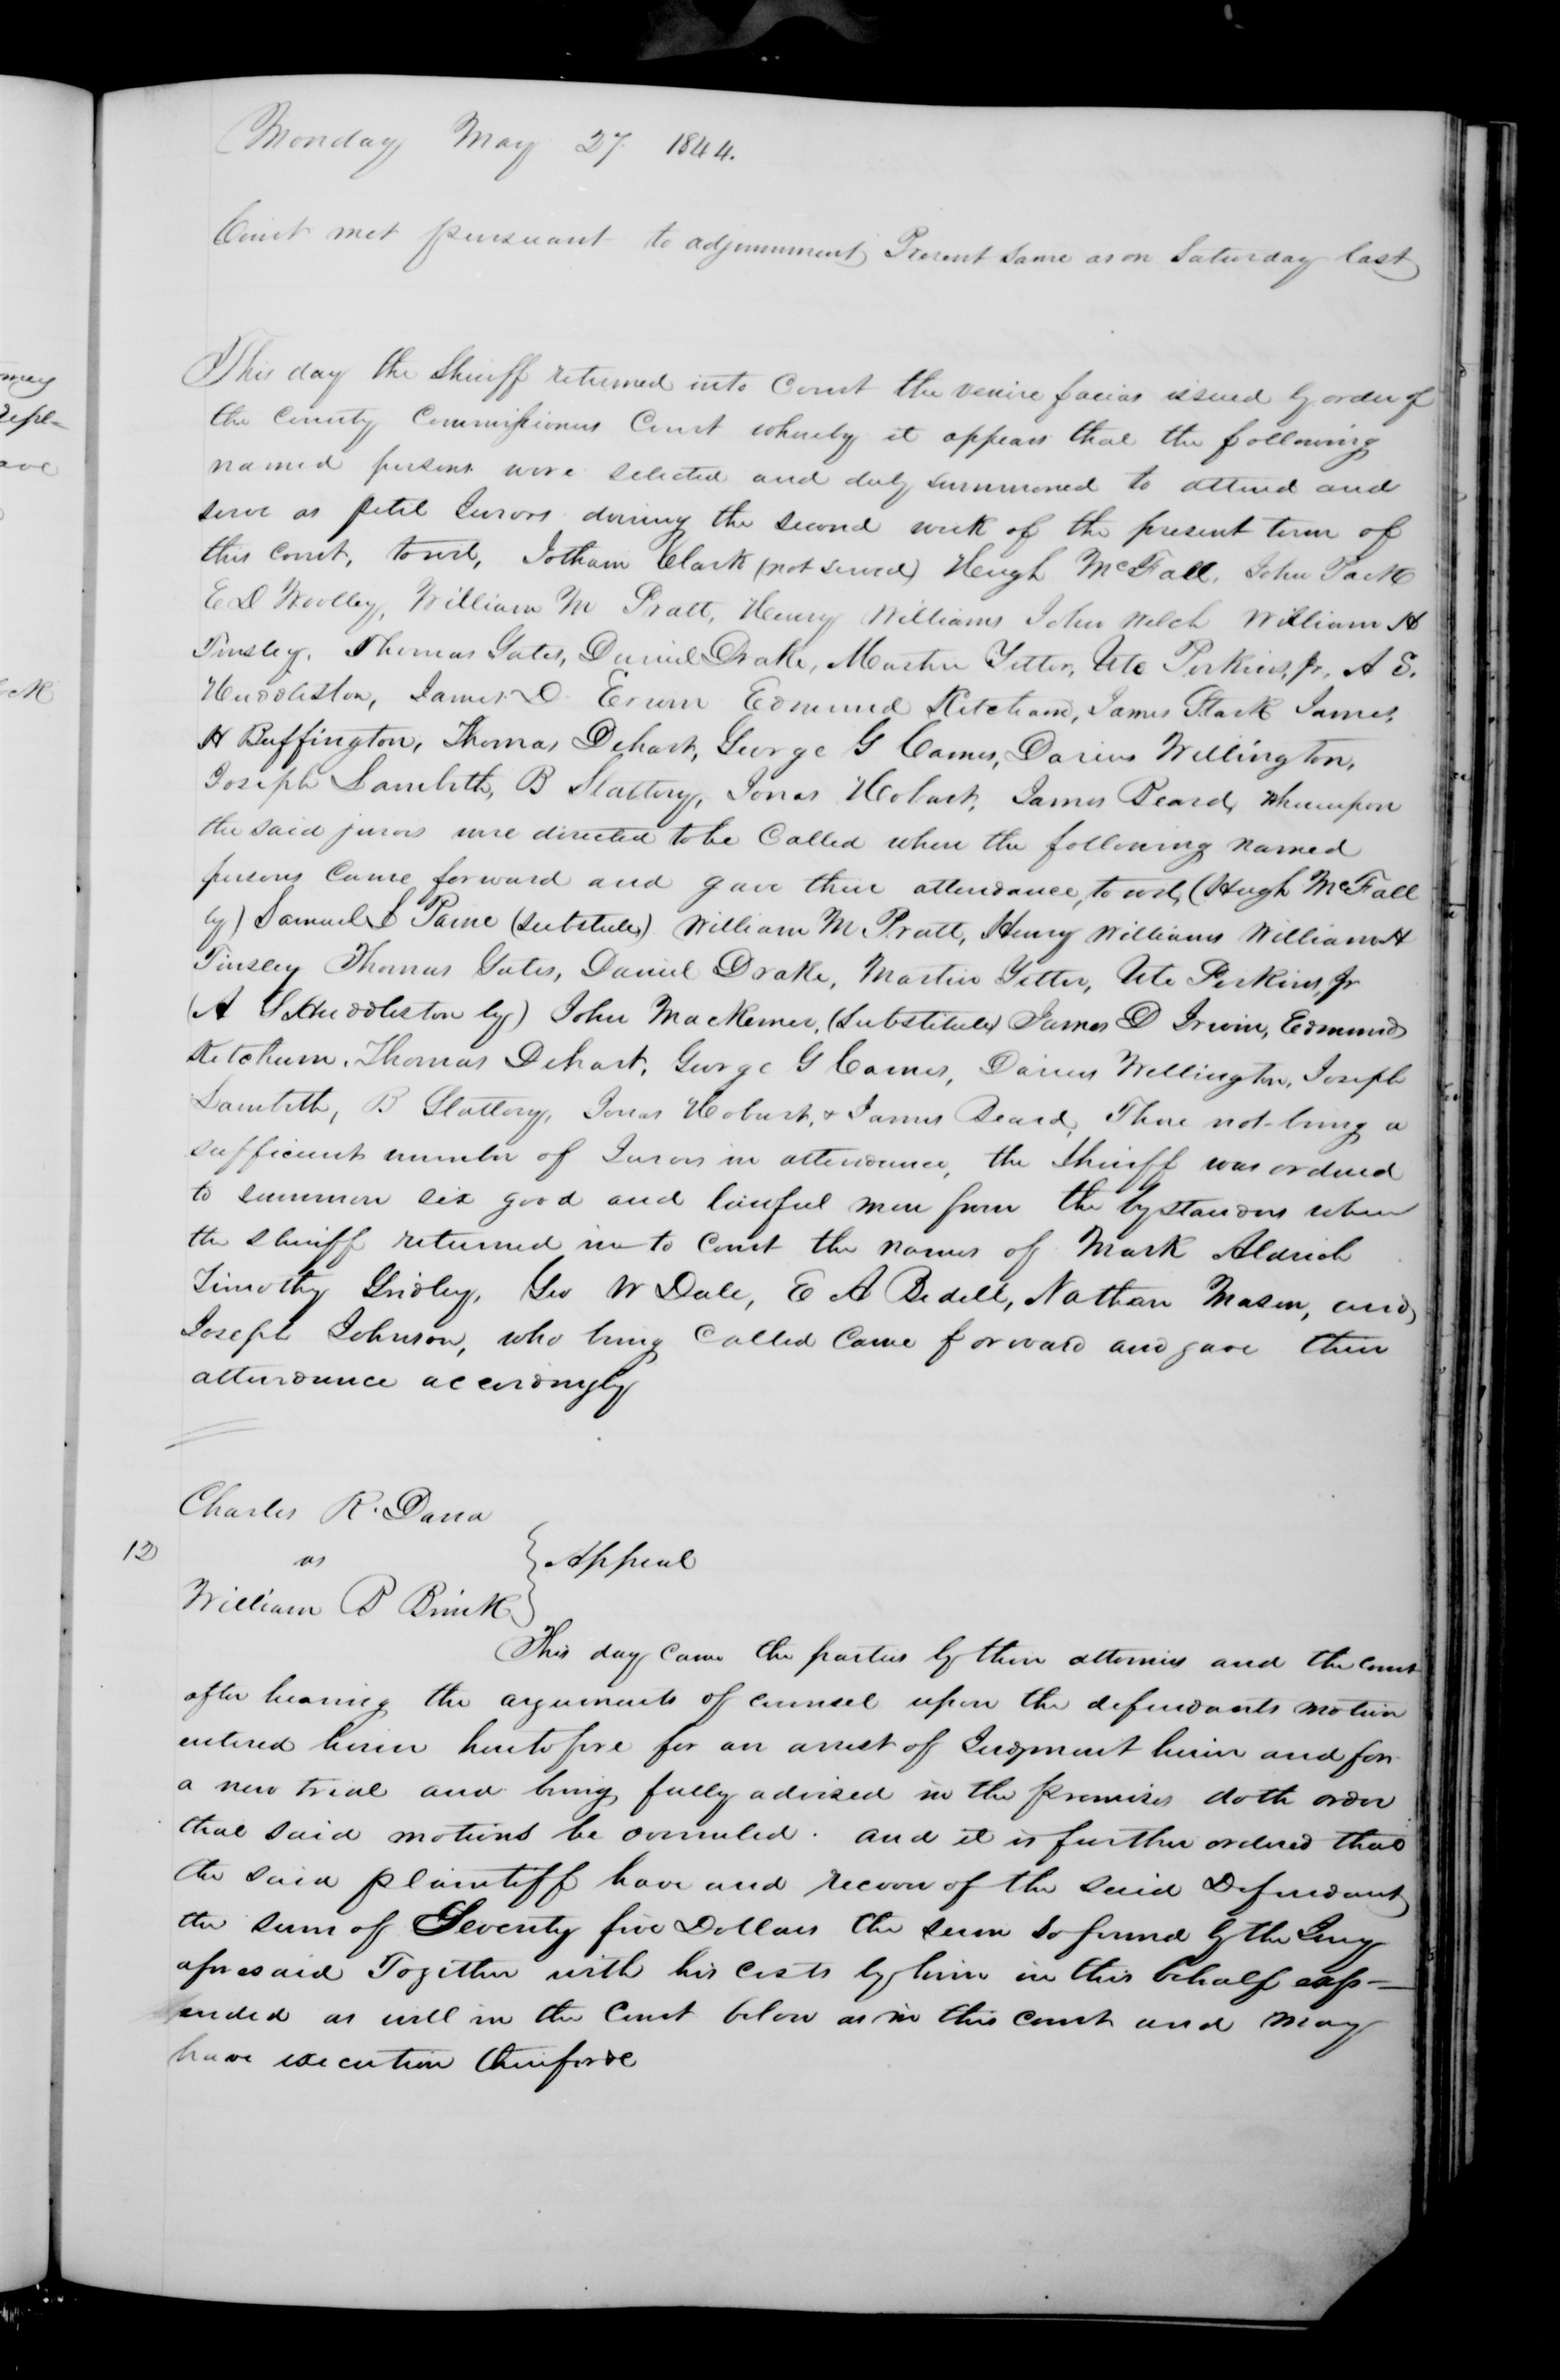 Monday May 27 1844.
Court met pursuant to adjournment Present same as on Saturday last
This day the Sheriff returned into Court the venire facias issued by order of
the County Commissioners Court whereby it appears that the following
named persons were selected and duly summoned to attend and
serve as petit Jurors during the second week of the present term of
this court, towit, Jotham Clark (not served) Hugh McFall, John Pack
E D Woolley, William M Pratt, Henry Williams John Welch William H
Tinsley, Thomas Gates, Daniel Drake, Martin Yetter, Ute Perkins, Jr, A S.
Huddleston, James D Erwin Edmund Ketcham, James Stark James
H Buffington, Thomas Dehart, George G Cames, Darius Wellington,
Joseph Lambeth, B Slattery, Jonas Hobart, James Beard, Whereupon
the said jurors were directed to be Called when the following named
persons Came forward and gave their attendance, to wit, (Hugh McFall
by) Samuel S Paine (substitute) William M Pratt, Henry Williams William H
Tinsley Thomas Gates, Daniel Drake, Martin Yetter, Ute Perkins, Jr
(A S Huddleston by) John Mackemer, (Substitute) James D Irwin, Edmund
Ketchum, Thomas Dehart, George G Cames, Darius Wellington, Joseph
Lambeth, B Slattery, Jonas Hobart, & James Beard, There not being a
sufficient number of Jurors in attendance, the Sheriff was ordered
to summon six good and lawful men from the bystanders when
the Sheriff returned in to Court the names of Mark Aldrich
Timothy Gridley, Geo W Dale, E A Bedell, Nathan Mason, and
Joseph Johnson, who being Called Came forward and gave their
attendance accordingly
Charles R. Dana
12 vs } Appeal
William P Brink
This day came the parties by their attornies and the court
after hearing the arguments of counsel upon the defendants motion
entered herein heretofore for an arrest of Judgment herein and for
a new trial and being fully advised in the premises doth order
that said motions be overruled. and it is further ordered that
the said plaintiff have and recover of the said Defendant
the sum of Seventy five Dollars the sum so found by the Jury
aforesaid Together with his costs by him in this behalf exp-
ended as well in the Court below as in this court and may
have execution therefore